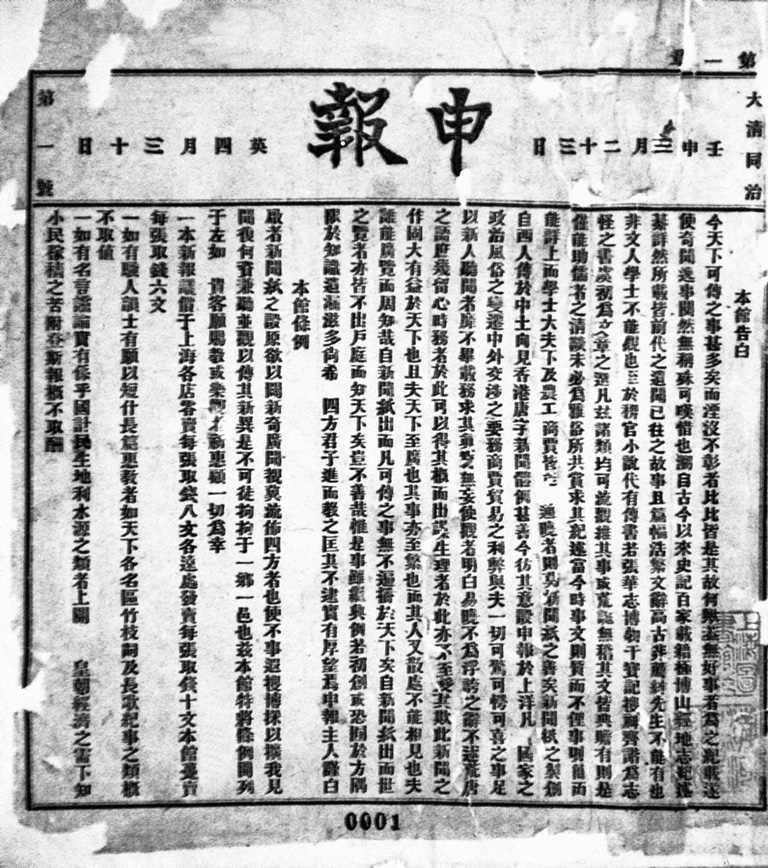 第一
大清同治
壬申三月二十三日
申報
英四月三十日
第一號
本館告白
今天下可傳之事甚多矣而湮沒不彰者比比皆是其故何歟蓋無好事者為之紀載遂
使奇聞逸事闃然無稱殊可嘆惜也溯自古今以來史記百家載籍極博山經地志紀述
綦詳然所載皆前代之遺聞已往之故事且篇幅浩繁文辭高古非薦紳先生不能有也
非文人學士不能觀也至於稗官小說代有傳書若張華志博物干寶記搜神齊諧為志
怪之書虞初為文章之選凡茲諸類均可流觀維其事或荒誕無稽其文皆典贍有則是
僅能助儒者之清談未必為雅俗所共賞求其紀述當今時事文則質而不俚事則簡而
能詳上而學士大夫下及農工商賈皆能通曉者則莫如新聞紙之善矣新聞紙之製創
自西人傳於中土向見香港唐字新聞體例甚善今仿其意設申報於上洋凡 國家之
政治風俗之變遷中外交涉之要務商賈貿易之利弊與夫一切可驚可愕可喜之事足
以新人聽聞者靡不畢載務求其真實無妄使觀者明白易曉不為浮夸之辭不述荒唐
之語庶幾留心時務者於此可以得其概而出謀生理者於此亦不至受其欺此新聞之
作固大有益於天下也且夫天下至廣也其事亦至繁也而其人又散處不能相見也夫
誰能廣覽而周知哉自新聞紙出而凡可傳之事無不遍播於天下矣自新聞紙出而世
之覽者亦皆不出戶庭而知天下矣豈不善哉惟是事雖與例若初創或恐囿於方隅
限於知識遺漏滋多尚希 四方君子進而教之匡其不逮實有厚望焉申報主人謹白
本館條例
啟者新聞紙之設原欲以闢新奇廣聞覩冀流佈四方者也使不事遐搜博採以擴我見
聞復何資兼聽並觀以傳其新異是不可徒拘拘于一鄉一邑也茲本館特將條例開列
于左如 貴客願賜教或乘便惠顧一切為幸
一本新報議価于上海各店零賣每張取錢八文各遠處發賣每張取錢十文本館躉賣
每張取錢六文
一如有騷人韻士有願以短什長篇惠教者如天下各名區竹枝詞及長歌紀事之類概
不取值
一如有名言讜論實有係乎國計民生地利水源之類者上關 皇朝經濟之需下知
小民稼穡之苦附登斯報概不取酬
0001